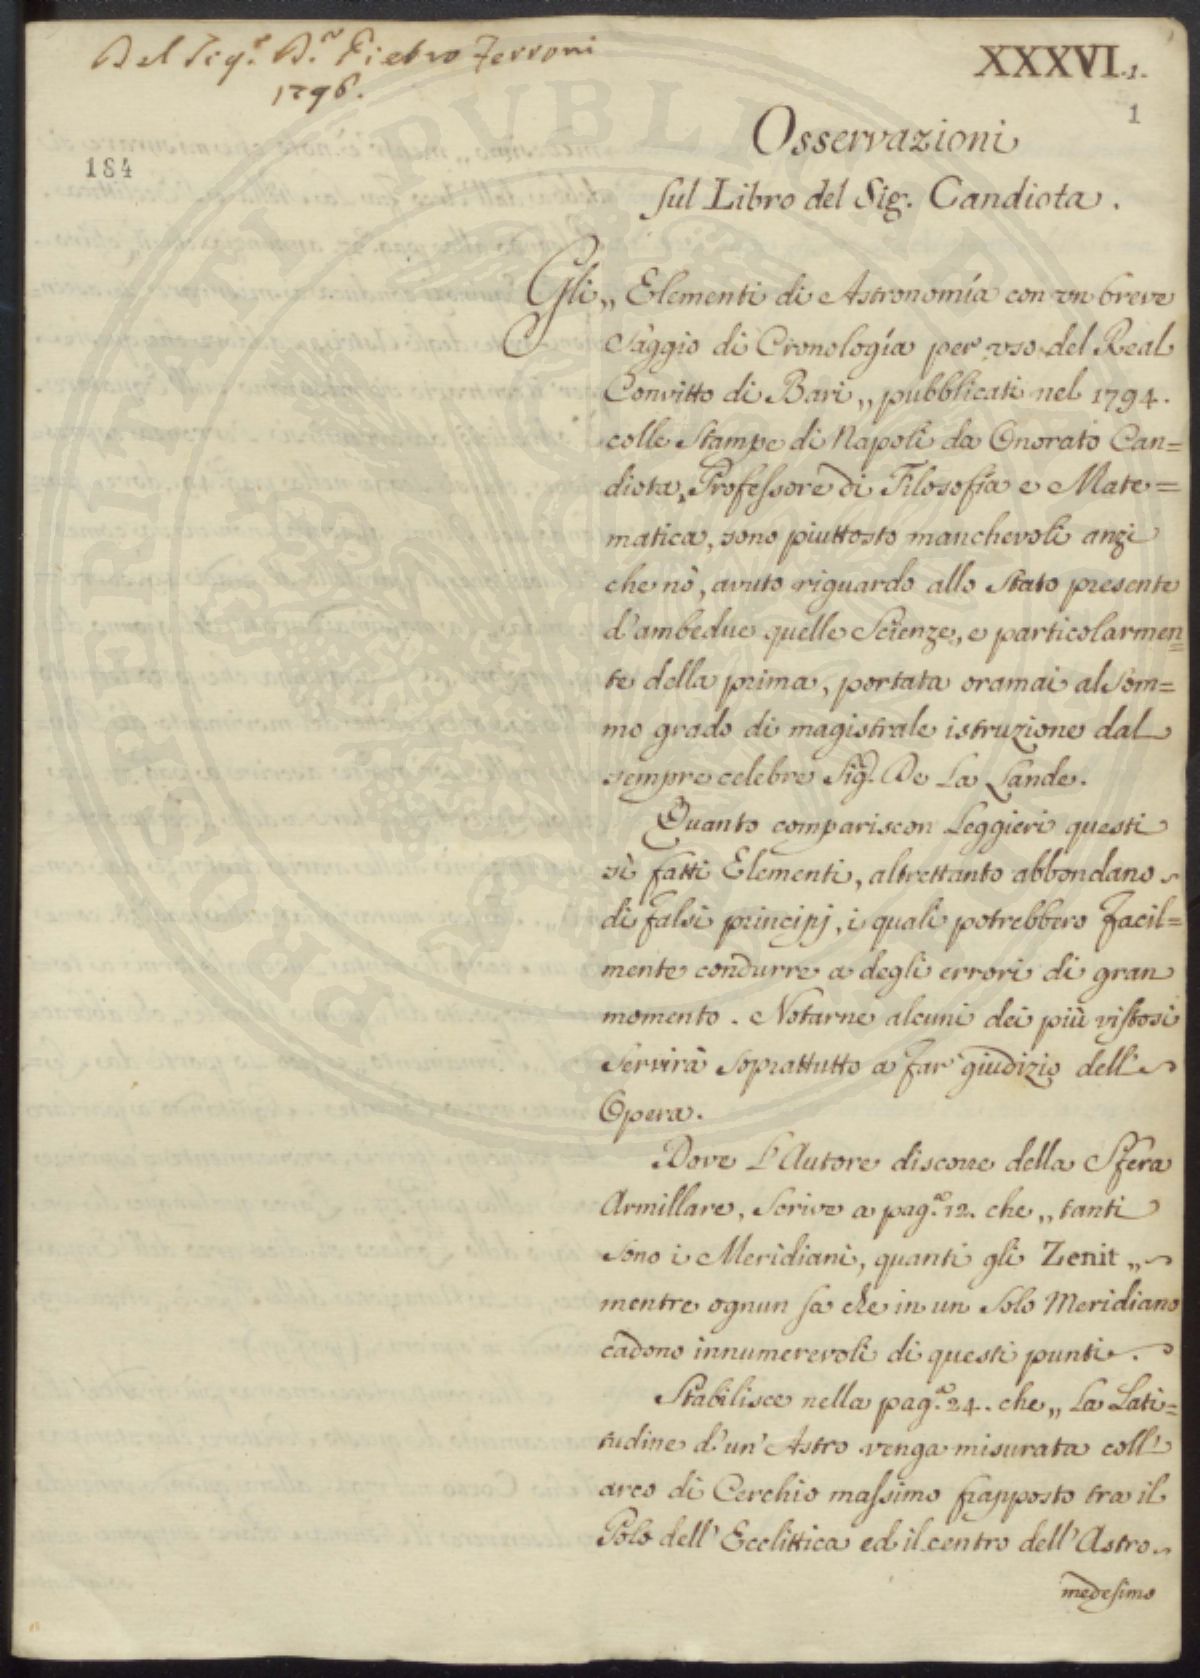 Del Sig.r D.r Pietro Ferroni
1796.
XXXVI.1.
1
184
Osservazioni
sul Libro del Sig. Candiota.
Gli „ Elementi di Astronomía con un breve
Saggio di Cronología per uso del Real
Convitto di Bari „ pubblicati nel 1794.
colle Stampe di Napoli da Onorato Can=
diota, Professore di Filosofía e Mate=
matica, sono piuttosto manchevoli anzi
che nò, avuto riguardo allo Stato presente
d'ambedue quelle Scienze, e particolarmen=
te della prima, portata oramai al Som=
mo grado di magistrale istruzione dal
sempre celebre Sig. De La Lande.
Quanto compariscon Leggieri questi
sì fatti Elementi, altrettanto abbondano
di falsi principj, i quali potrebbero facil=
mente condurre a degli errori di gran
momento. Notarne alcuni dei più vistosi
Servirà Soprattutto a far giudizio dell'
Opera.
Dove L'Autore discorre della Sfera
Armillare, Scrive a pag.a 12. che „ tanti
Sono i Meridiani, quanti gli Zenit „
mentre ognun sa che in un Solo Meridiano
cadono innumerevoli di questi punti.
Stabilisce nella pag.a 24. che „ La Lati=
tudine d'un' Astro venga misurata coll'
arco di Cerchio massimo frapposto tra il
Polo dell' Ecclittica ed il centro dell' Astro
medesimo